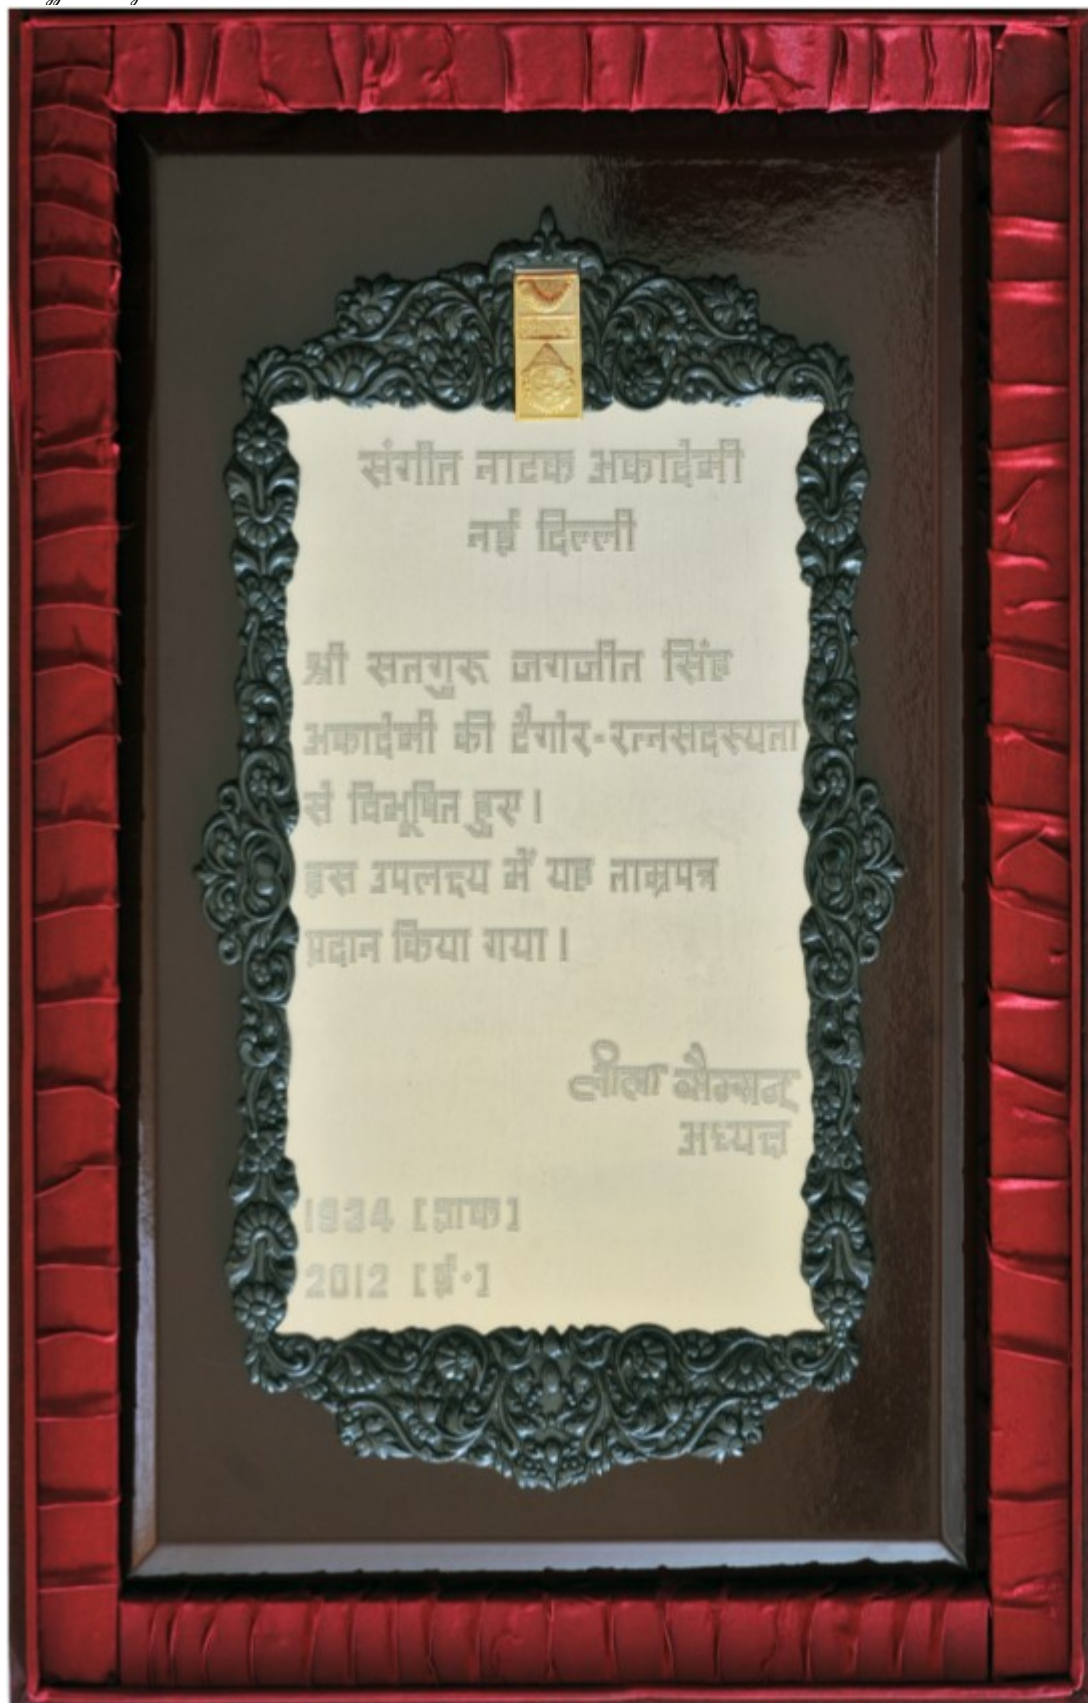 संगीत नाटक अकादेमी
नई दिल्ली
श्री सतगुरु जगजीत सिंह
अकादेमी की टैगोर-रत्नसदस्यता
से विभूषित हुए।
इस उपलक्ष्य में यह ताम्रपत्र
प्रदान किया गया।
लीला सैम्सन्
अध्यक्ष
1934 [शक]
2012 [ई॰]